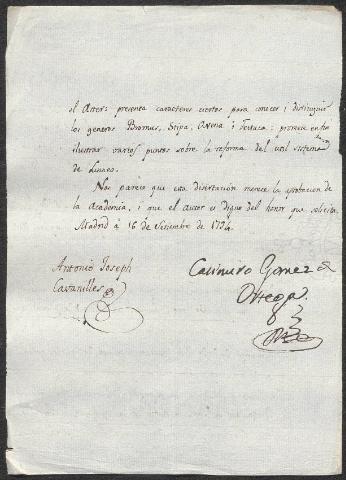 el Autor: presenta caracteres ciertos para conocer i distinguir
los generos Bromus, Stipa, Avena i Festuca: promete en fin
ilustrar varios puntos sobre la reforma del util sistema
de Linneo.
Nos parece que esta disertacion merece la aprobacion de
la Academia, i que el autor es digno del honor que solicita.
Madrid à 16 de Setiembre de 1794.
Antonio Joseph
Cavanilles
Casimiro Gomez de
Ortega.